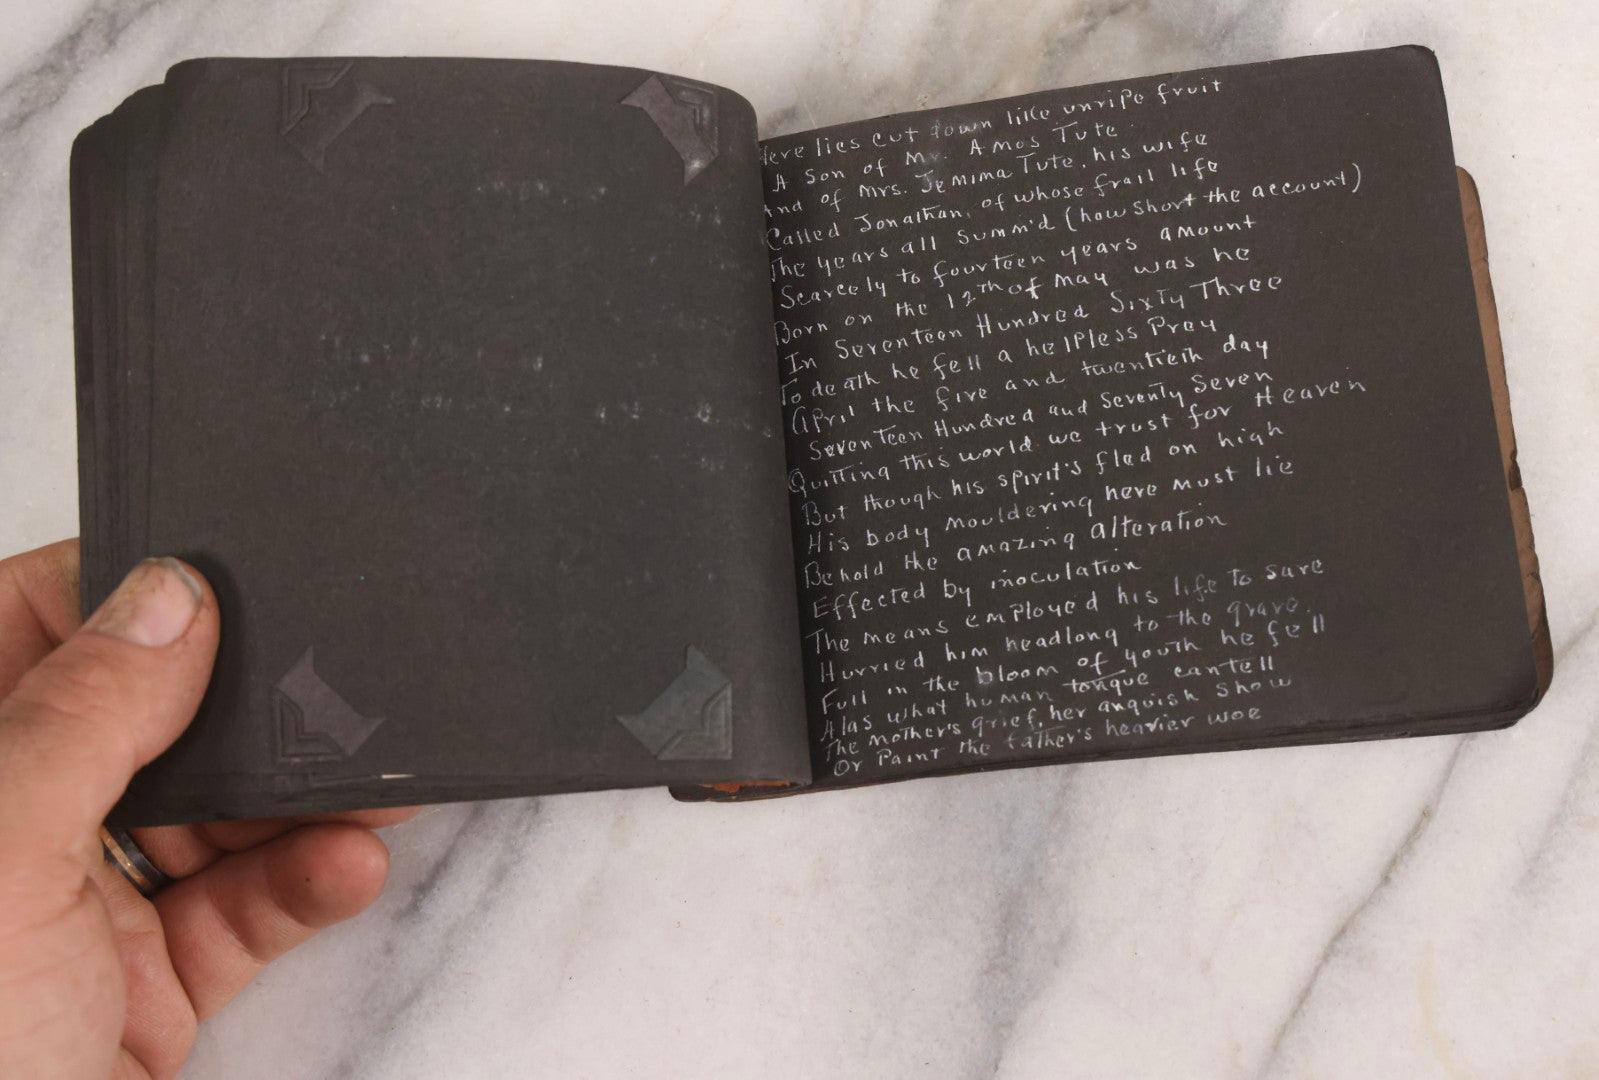 Here lies cut down like unripe fruit
A son of Mr. Amos Tute
And of Mrs. Jemima Tute, his wife
Called Jonathan, of whose frail life
The years all summ'd (how short the account)
Scarcely to fourteen years amount
Born on the 12th of May was he
In Seventeen Hundred Sixty Three
To death he fell a helpless Prey
April the five and twentieth day
Seventeen Hundred and Seventy Seven
Quitting this world we trust for Heaven
But though his spirit's fled on high
His body mouldering here must lie
Behold the amazing alteration
Effected by inoculation
The means employed his life to save
Hurried him headlong to the grave.
Full in the bloom of youth he fell
Alas what human tongue can tell
The mother's grief, her anguish show
Or Paint the father's heavier woe